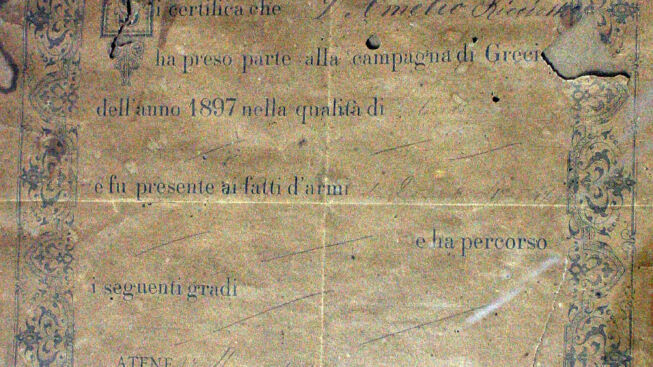 Si certifica che
ha preso parte alla campagna di Greci
dell'anno 1897 nella qualità di
e fu presente ai fatti d'armi
e ha percorso
i seguenti gradi
ATENE